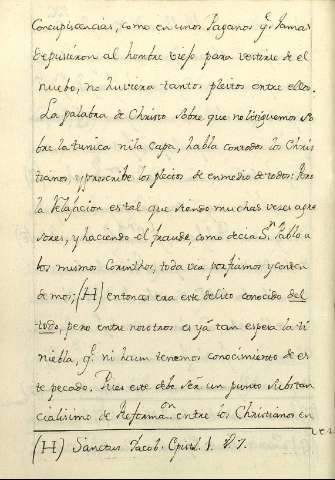 Concupiscencias, como en unos Paganos q.e Jamas
depusieron al hombre viejo para vestirse de el
nuebo, no huviera tantos pleitos entre ellos.
La palabra de Christo sobre que no litiguemos so
bre la tunica ni la capa, habla con todos los Chris
tianos, y proscribe los pleitos de enmedio de todos: Pero
la Relajacion es tal que siendo muchas veces agre
sores, y haciendo el fraude, como decia S.n Pablo a
los mismos Corinthos, toda vea porfiamos y conten
demos; (H) entonces era este delito conocido del
todo, pero entre nosotros es yá tan espesa la ti
niebla, q.e ni haun tenemos conocimiento de es
te pecado. Pues este debe ser un punto substan
cialisimo de Reforma.on entre los Christianos en
(H) Sanctus Jacob. Epist. 1. V. 7.